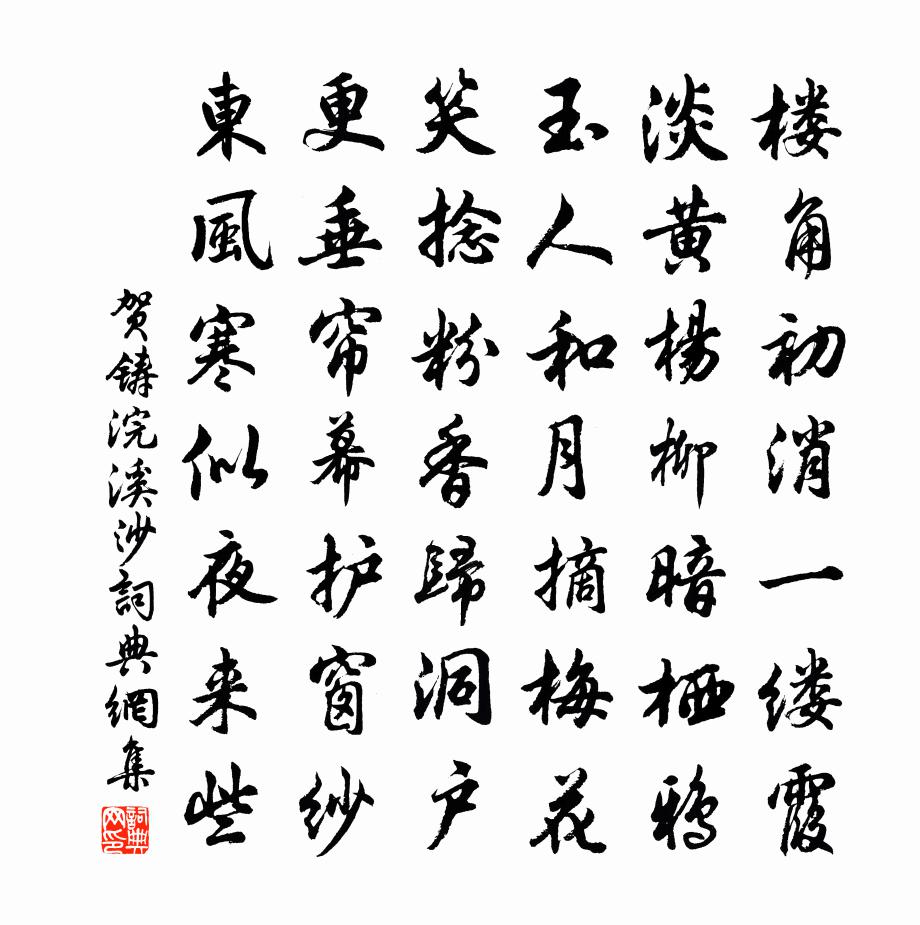 楼角初消一缕霞
淡黄楊柳暗栖鸦
玉人和月摘梅花
笑捻粉香歸洞户
更垂帘幕护窗纱
東風寒似夜来些
贺铸浣溪沙詞典網集
詞典网印